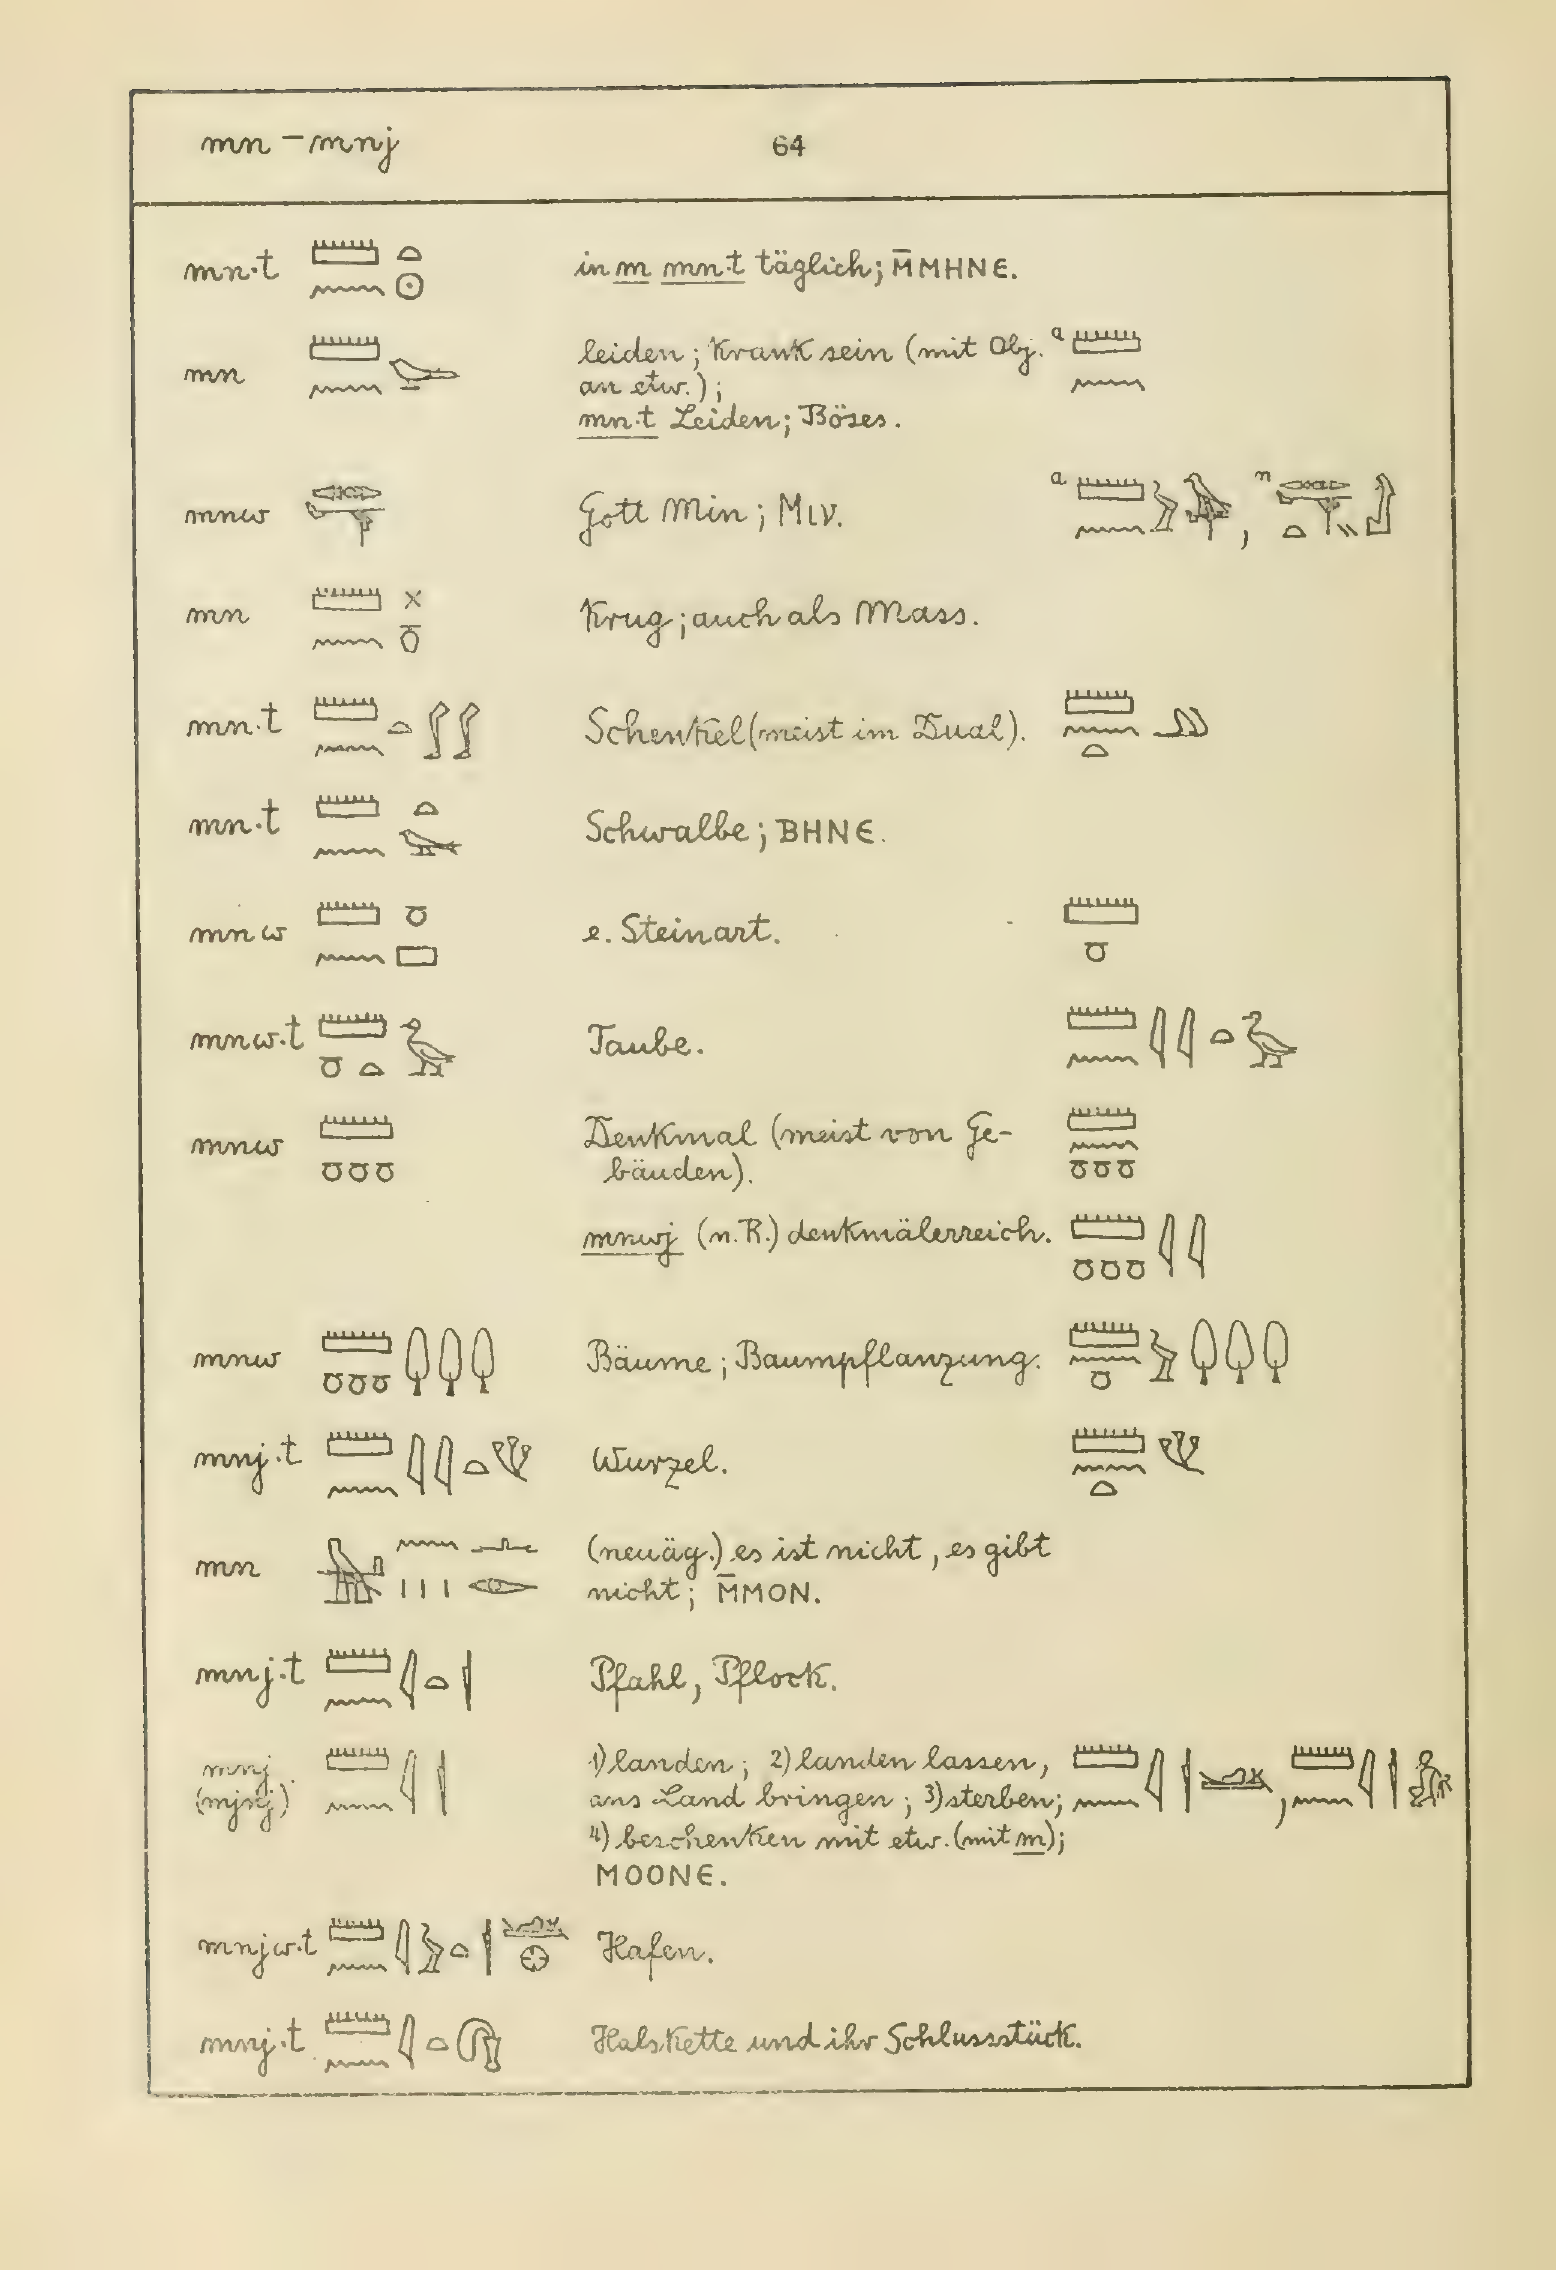 mn – mnj 64
mn·t in m mn·t täglich; M̄MHNE.
mn leiden; krank sein (mit Obj. a
an etw.);
mn·t Leiden; Böses.
mnw Gott Min; MIN. a , n
mn Krug; auch als Mass.
mn·t Schenkel (meist im Dual).
mn·t Schwalbe; BHNE.
mnw e. Steinart.
mnw·t Taube.
mnw Denkmal (meist von Ge-
bäuden).
mnwj (n. R.) denkmälerreich.
mnw Bäume; Baumpflanzung.
mnj·t Wurzel.
mn (neuäg.) es ist nicht, es gibt
nicht; M̄MON.
mnj·t Pfahl, Pflock.
mnj 1) landen; 2) landen lassen,
(mjnj) ans Land bringen; 3) sterben; ,
4) beschenken mit etw. (mit m);
MOONE.
mnjw·t Hafen.
mnj·t Halskette und ihr Schlussstück.